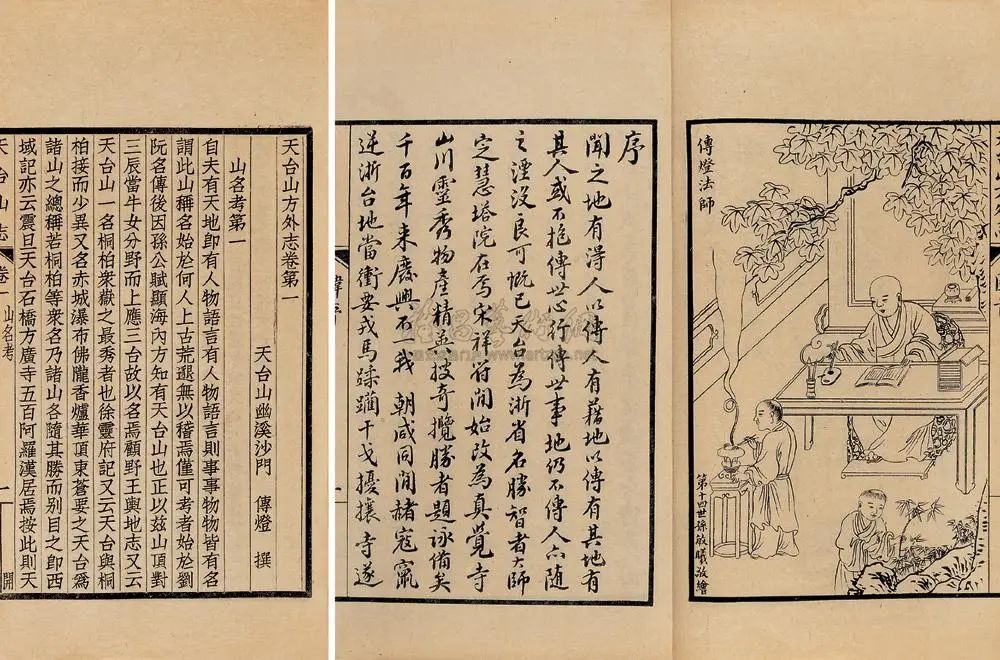 傳燈法師
第十四世孫敏曦敬繪
序
聞之地有得人以傳人有藉地以傳有其地有
其人或不抱傳世心行傳世事地仍不傳人亦隨
之湮没良可慨已天台為浙省名勝智者大師
定慧塔院在焉宋祥符間始改為真覺寺
山川靈秀物產精英披奇攬勝者題詠備矣
千百年來廢興不一我 朝咸同間赭寇竄
逆浙台地當衝要戎馬蹂躪干戈擾攘寺遂
天台山方外志卷第一
天台山幽溪沙門 傳燈 撰
山名考第一
自夫有天地卽有人物語言有人物語言則事事物物皆有名
謂此山稱名始於何人上古荒邈無以稽焉僅可考者始於劉
阮名傳後因孫公賦顯海內方知有天台山也正以茲山頂對
三辰當牛女分野而上應三台故以名焉顧野王輿地志又云
天台山一名桐柏衆嶽之最秀者也徐靈府記又云天台與桐
柏接而少異又名赤城瀑布佛隴香爐華頂東蒼要之天台爲
諸山之總稱若桐柏等衆名乃諸山各隨其勝而别目之卽西
域記亦云震旦天台石橋方廣寺五百阿羅漢居焉按此則天
天台山志 卷一 山名考 一